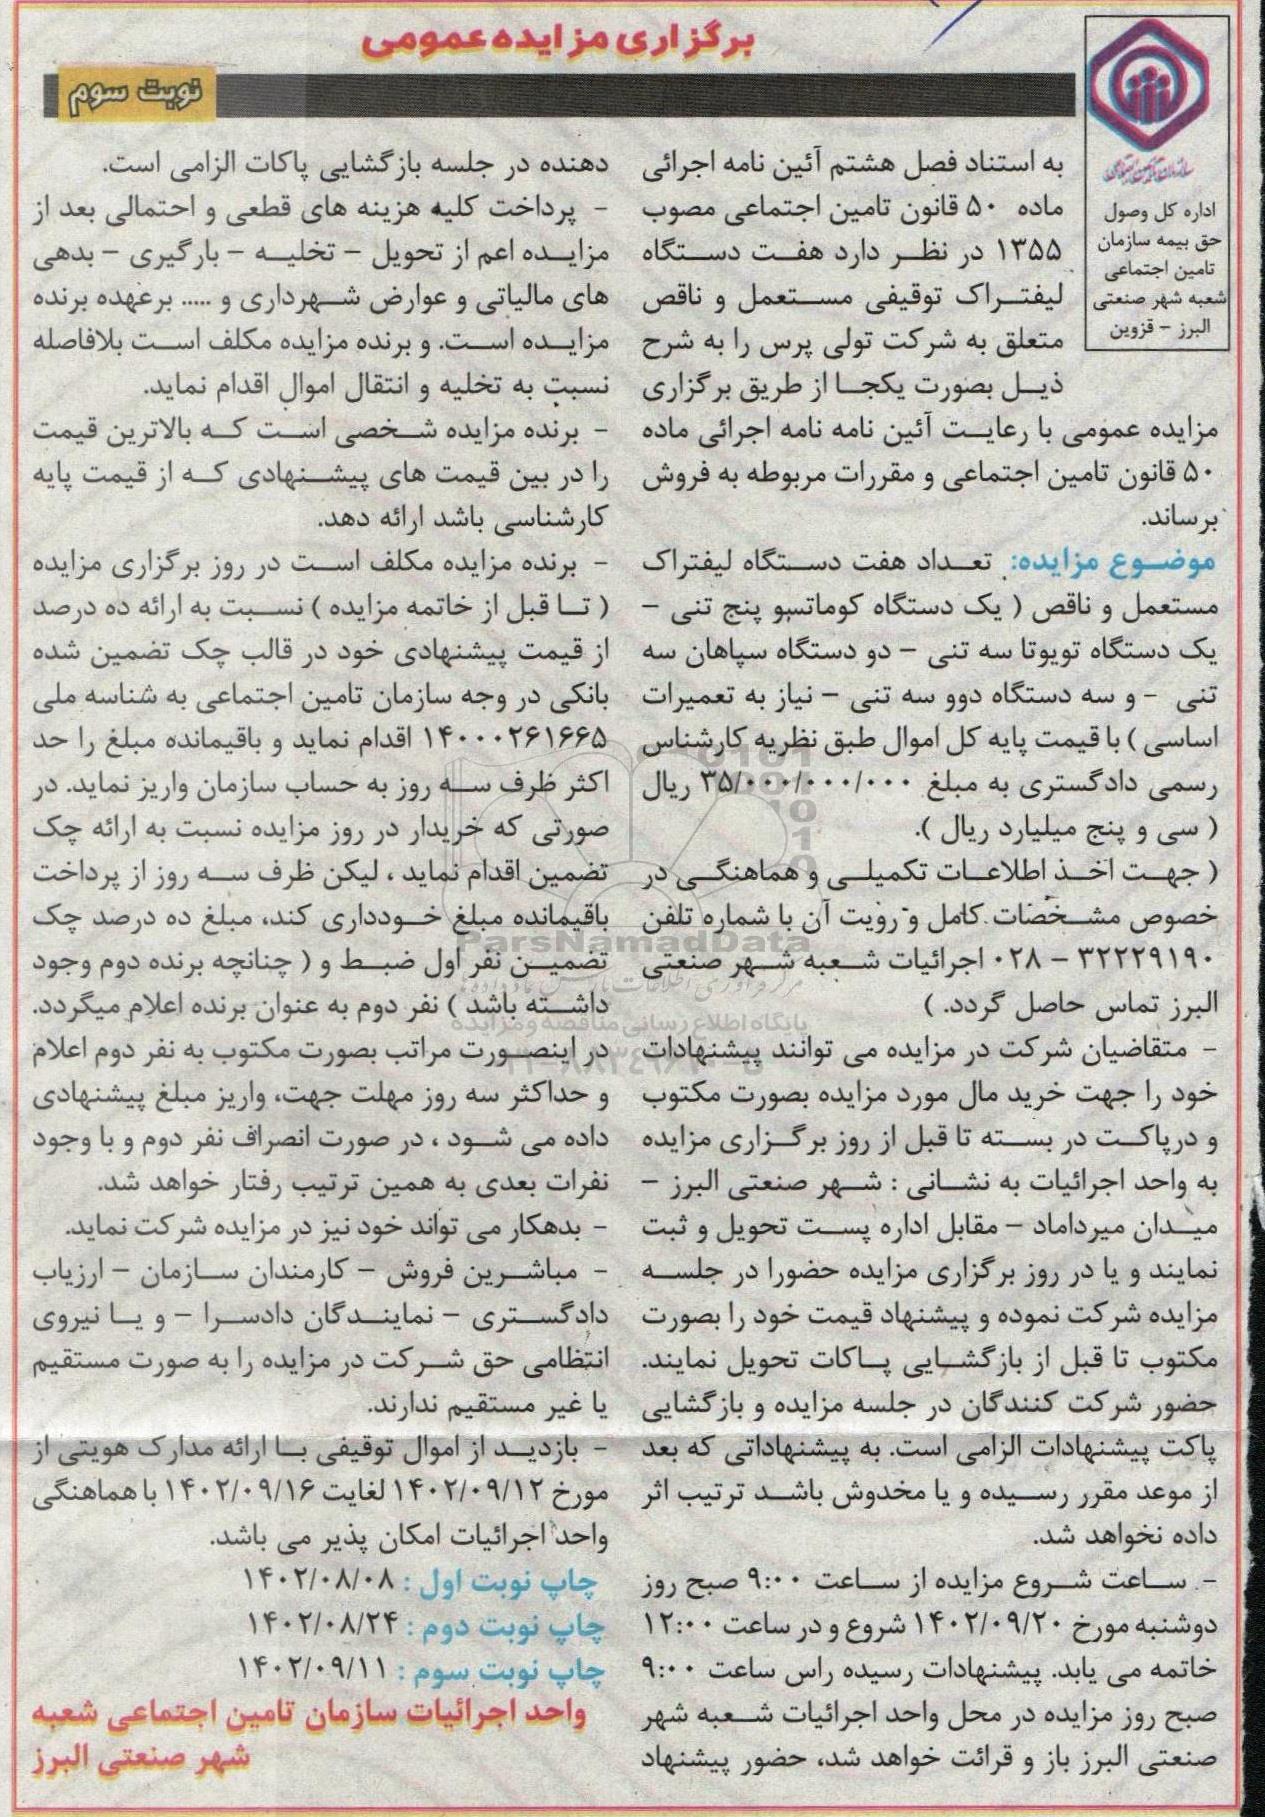 برگزاری مزایده عمومی
نوبت سوم
سازمان تامین اجتماعی
اداره کل وصول
حق بیمه سازمان
تامین اجتماعی
شعبه شهر صنعتی
البرز - قزوین
به استناد فصل هشتم آئین نامه اجرائی
ماده ۵۰ قانون تامین اجتماعی مصوب
۱۳۵۵ در نظر دارد هفت دستگاه
لیفتراک توقیفی مستعمل و ناقص
متعلق به شرکت تولی پرس را به شرح
ذیل بصورت یکجا از طریق برگزاری
مزایده عمومی با رعایت آئین نامه نامه اجرائی ماده
۵۰ قانون تامین اجتماعی و مقررات مربوطه به فروش
برساند.
موضوع مزایده: تعداد هفت دستگاه لیفتراک
مستعمل و ناقص ( یک دستگاه کوماتسو پنج تنی -
یک دستگاه تویوتا سه تنی - دو دستگاه سپاهان سه
تنی - و سه دستگاه دوو سه تنی - نیاز به تعمیرات
اساسی ) با قیمت پایه کل اموال طبق نظریه کارشناس
رسمی دادگستری به مبلغ ۳۵/۰۰۰/۰۰۰/۰۰۰ ریال
( سی و پنج میلیارد ریال ).
( جهت اخذ اطلاعات تکمیلی و هماهنگی در
خصوص مشخصات کامل و رویت آن با شماره تلفن
۳۲۲۲۹۱۹۰ - ۰۲۸ اجرائیات شعبه شهر صنعتی
البرز تماس حاصل گردد. )
- متقاضیان شرکت در مزایده می توانند پیشنهادات
خود را جهت خرید مال مورد مزایده بصورت مکتوب
و درپاکت در بسته تا قبل از روز برگزاری مزایده
به واحد اجرائیات به نشانی : شهر صنعتی البرز -
میدان میرداماد - مقابل اداره پست تحویل و ثبت
نمایند و یا در روز برگزاری مزایده حضورا در جلسه
مزایده شرکت نموده و پیشنهاد قیمت خود را بصورت
مکتوب تا قبل از بازگشایی پاکات تحویل نمایند.
حضور شرکت کنندگان در جلسه مزایده و بازگشایی
پاکت پیشنهادات الزامی است. به پیشنهاداتی که بعد
از موعد مقرر رسیده و یا مخدوش باشد ترتیب اثر
داده نخواهد شد.
- ساعت شروع مزایده از ساعت ۹:۰۰ صبح روز
دوشنبه مورخ ۱۴۰۲/۰۹/۲۰ شروع و در ساعت ۱۲:۰۰
خاتمه می یابد. پیشنهادات رسیده راس ساعت ۹:۰۰
صبح روز مزایده در محل واحد اجرائیات شعبه شهر
صنعتی البرز باز و قرائت خواهد شد، حضور پیشنهاد
دهنده در جلسه بازگشایی پاکات الزامی است.
- پرداخت کلیه هزینه های قطعی و احتمالی بعد از
مزایده اعم از تحویل - تخلیه - بارگیری - بدهی
های مالیاتی و عوارض شهرداری و ..... برعهده برنده
مزایده است. و برنده مزایده مکلف است بلافاصله
نسبت به تخلیه و انتقال اموال اقدام نماید.
- برنده مزایده شخصی است که بالاترین قیمت
را در بین قیمت های پیشنهادی که از قیمت پایه
کارشناسی باشد ارائه دهد.
- برنده مزایده مکلف است در روز برگزاری مزایده
( تا قبل از خاتمه مزایده ) نسبت به ارائه ده درصد
از قیمت پیشنهادی خود در قالب چک تضمین شده
بانکی در وجه سازمان تامین اجتماعی به شناسه ملی
۱۴۰۰۰۲۶۱۶۶۵ اقدام نماید و باقیمانده مبلغ را حد
اکثر ظرف سه روز به حساب سازمان واریز نماید. در
صورتی که خریدار در روز مزایده نسبت به ارائه چک
تضمین اقدام نماید ، لیکن ظرف سه روز از پرداخت
باقیمانده مبلغ خودداری کند، مبلغ ده درصد چک
تضمین نفر اول ضبط و ( چنانچه برنده دوم وجود
داشته باشد ) نفر دوم به عنوان برنده اعلام میگردد.
در اینصورت مراتب بصورت مکتوب به نفر دوم اعلام
و حداکثر سه روز مهلت جهت، واریز مبلغ پیشنهادی
داده می شود ، در صورت انصراف نفر دوم و با وجود
نفرات بعدی به همین ترتیب رفتار خواهد شد.
- بدهکار می تواند خود نیز در مزایده شرکت نماید.
- مباشرین فروش - کارمندان سازمان - ارزیاب
دادگستری - نمایندگان دادسرا - و یا نیروی
انتظامی حق شرکت در مزایده را به صورت مستقیم
یا غیر مستقیم ندارند.
- بازدید از اموال توقیفی با ارائه مدارک هویتی از
مورخ ۱۴۰۲/۰۹/۱۲ لغایت ۱۴۰۲/۰۹/۱۶ با هماهنگی
واحد اجرائیات امکان پذیر می باشد.
چاپ نوبت اول : ۱۴۰۲/۰۸/۰۸
چاپ نوبت دوم : ۱۴۰۲/۰۸/۲۴
چاپ نوبت سوم : ۱۴۰۲/۰۹/۱۱
واحد اجرائیات سازمان تامین اجتماعی شعبه
شهر صنعتی البرز
ParsNamadData
پایگاه اطلاع رسانی مناقصه و مزایده